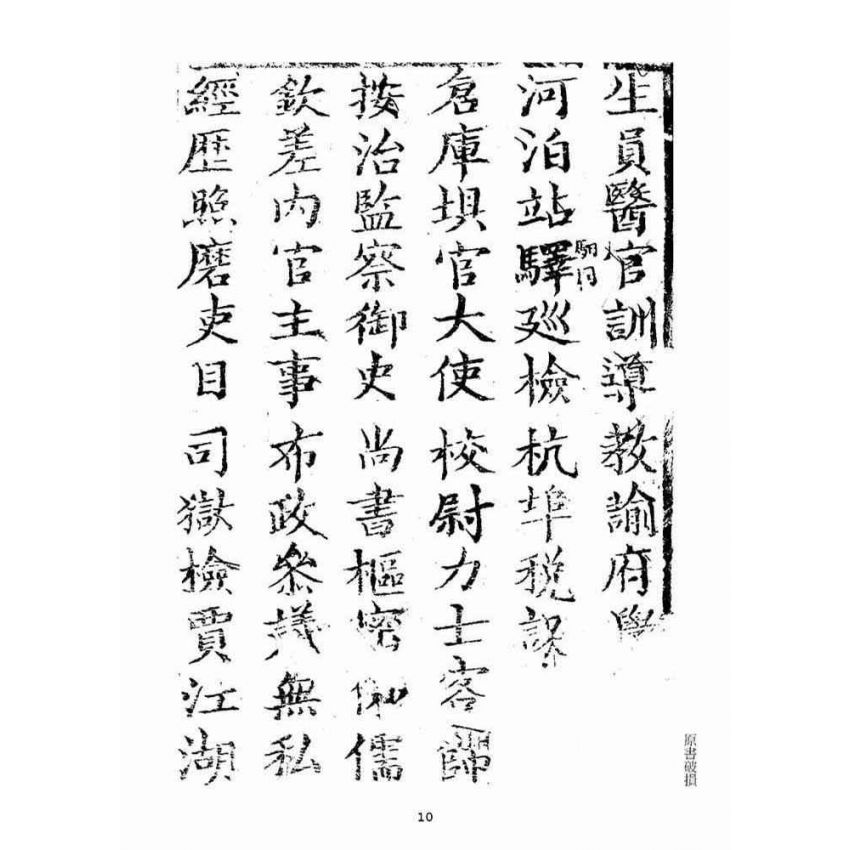 生員醫官訓導教諭府學
河泊站驛廵檢杭埠稅課
倉庫垻官大使校尉力士客歸
按治監察御史尚書樞密儒
欽差内官主事布政叅議無私
經歴照磨吏目司獄檢賈江湖
原書破損
10